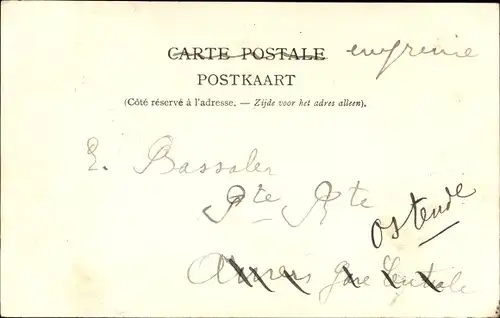 CARTE POSTALE
POSTKAART
(Côté réservé à l'adresse. — Zijde voor het adres alleen).
E. Bassaler
Pte Rte
Ostende
Anvers Gare Centrale